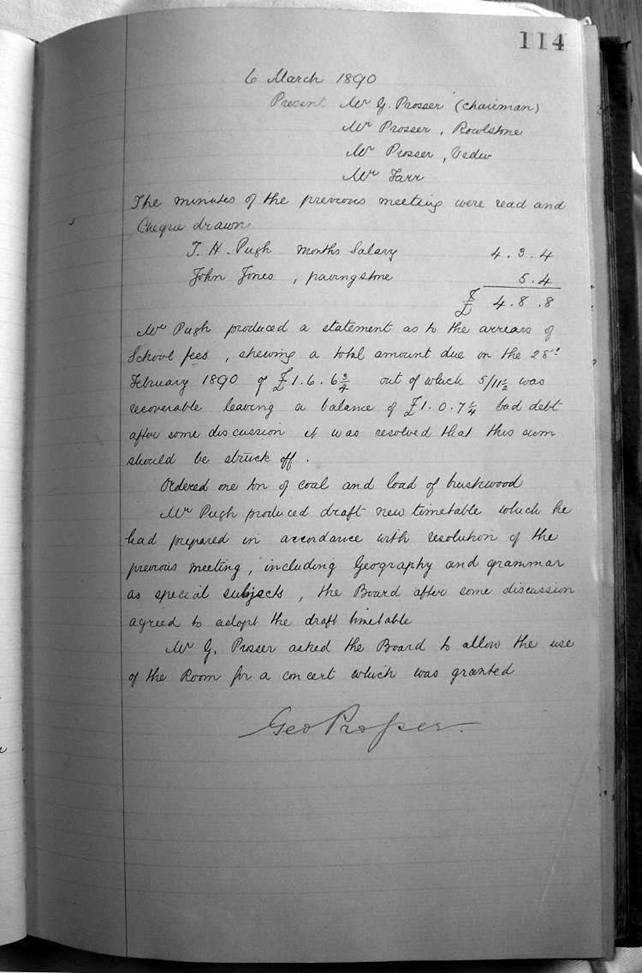 114
6 March 1890
Present Mr G. Prosser (Chairman)
Mr Prosser, Rowlstone
Mr Prosser, Vedw
Mr Farr
The minutes of the previous meeting were read and
Cheque drawn
T. H. Pugh months Salary 4.3.4
John Jones, pavingstone 5.4
£ 4.8.8
Mr Pugh produced a statement as to the arrears of
School fees, shewing a total amount due on the 28th
February 1890 of £1.6.6¾ out of which 5/11½ was
recoverable leaving a balance of £1.0.7¼ bad debt
after some discussion it was resolved that this sum
should be struck off.
Ordered one ton of coal and load of brushwood
Mr Pugh produced draft new timetable which he
had prepared in accordance with resolution of the
previous meeting, including Geography and grammar
as special subjects, the Board after some discussion
agreed to adopt the draft timetable
Mr G. Prosser asked the Board to allow the use
of the Room for a concert which was granted
Geo Prosser.